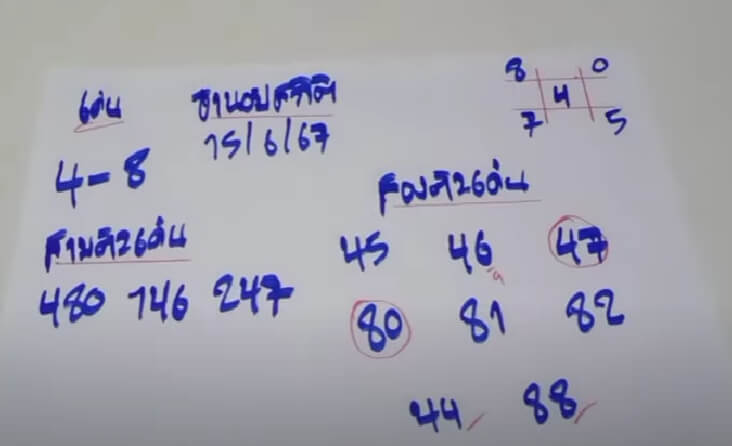 เด่น
4-8
ฮานอยสถิติ
15/6/67
8 0
4
7 5
สามตัวเด่น
480 146 247
สองตัวเด่น
45 46 47
80 81 82
44 88